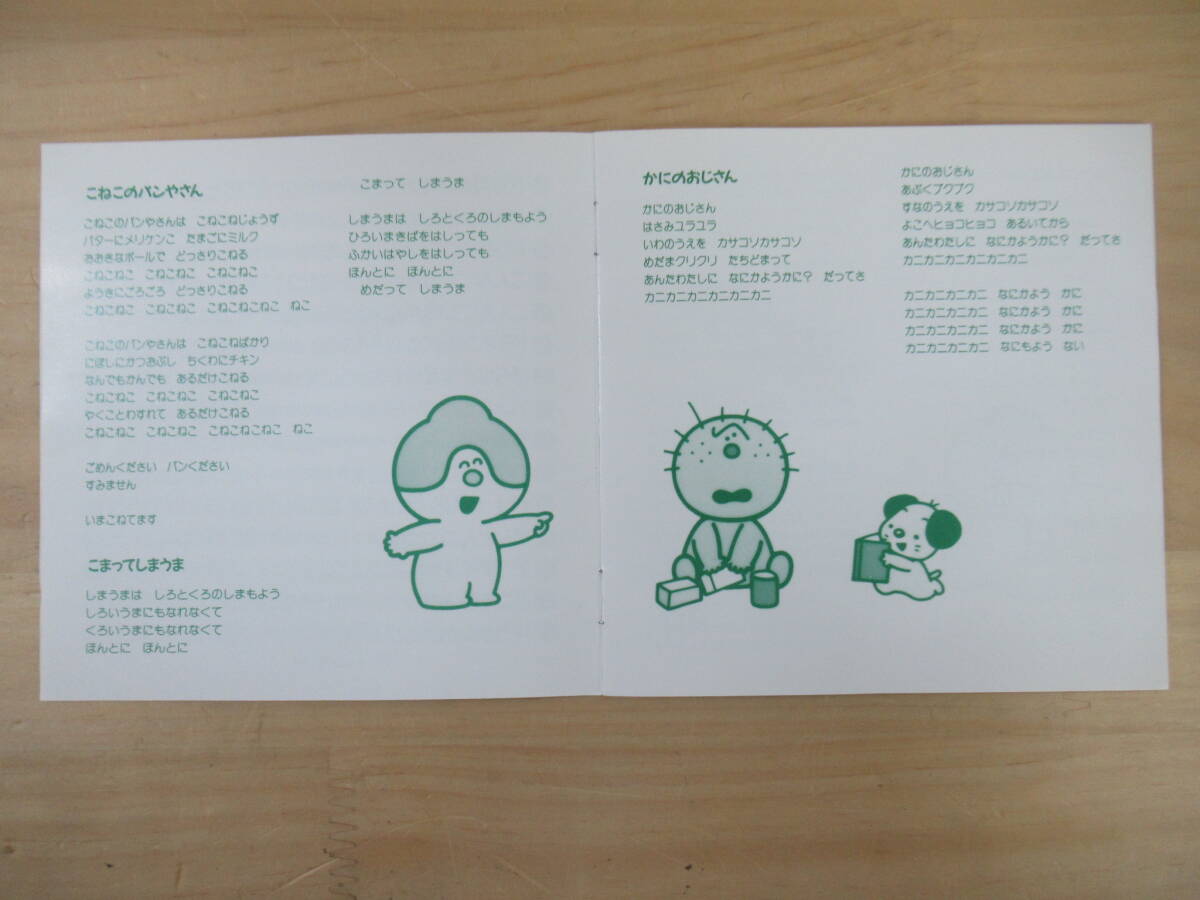 こねこのパンやさん
こねこのパンやさんは　こねこねじょうず
バターにメリケンこ　たまごにミルク
おおきなボールで　どっさりこねる
こねこねこ　こねこねこ　こねこねこ
ようきにごろごろ　どっさりこねる
こねこねこ　こねこねこ　こねこねこねこ　ねこ
こねこのパンやさんは　こねこねばかり
にぼしにかつおぶし　ちくわにチキン
なんでもかんでも　あるだけこねる
こねこねこ　こねこねこ　こねこねこ
やくことわすれて　あるだけこねる
こねこねこ　こねこねこ　こねこねこねこ　ねこ
ごめんください　パンください
すみません
いまこねてます
こまってしまうま
しまうまは　しろとくろのしまもよう
しろいうまにもなれなくて
くろいうまにもなれなくて
ほんとに　ほんとに
こまって　しまうま
しまうまは　しろとくろのしまもよう
ひろいまきばをはしっても
ふかいはやしをはしっても
ほんとに　ほんとに
めだって　しまうま
かにのおじさん
かにのおじさん
はさみユラユラ
いわのうえを　カサコソカサコソ
めだまクリクリ　たちどまって
あんたわたしに　なにかようかに？　だってさ
カニカニカニカニカニカニ
かにのおじさん
あぶくブクブク
すなのうえを　カサコソカサコソ
よこへヒョコヒョコ　あるいてから
あんたわたしに　なにかようかに？　だってさ
カニカニカニカニカニカニ
カニカニカニカニ　なにかよう　かに
カニカニカニカニ　なにかよう　かに
カニカニカニカニ　なにかよう　かに
カニカニカニカニ　なにもよう　ない